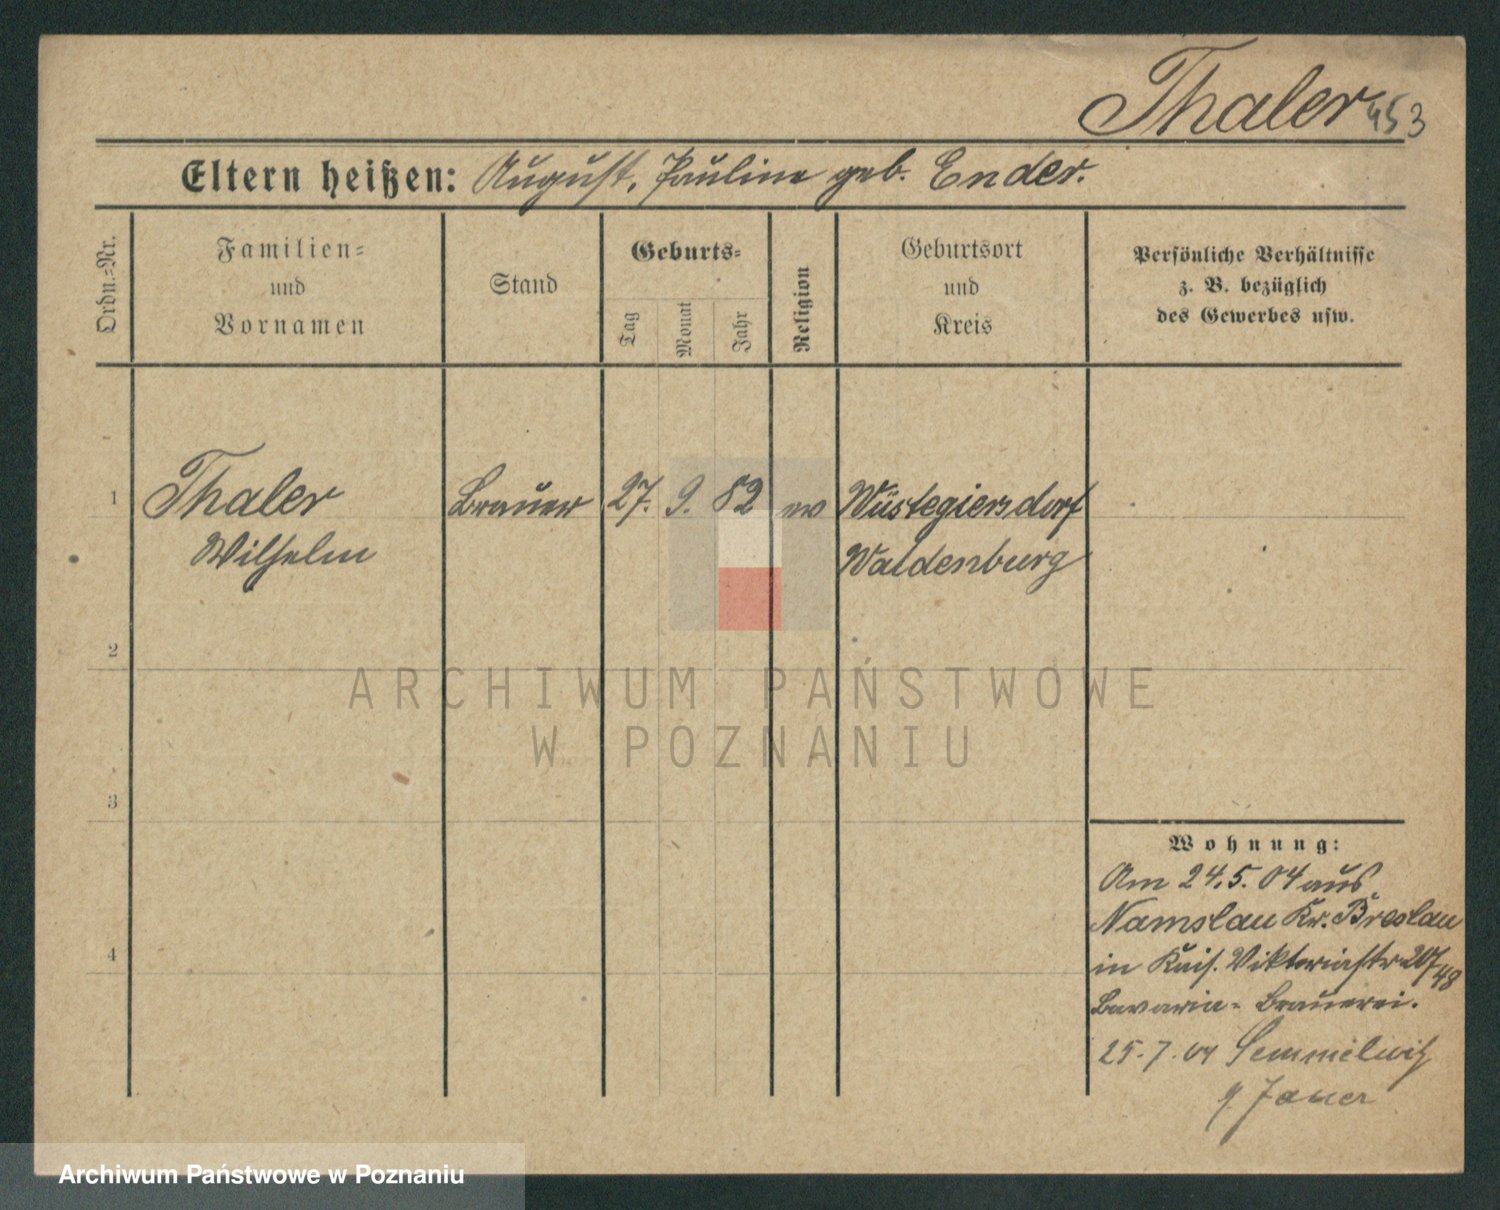 Thaler 453
Eltern heißen: August, Pauline geb. Ender.
Ordn.=Nr.
Familien=
und
Vornamen
Stand
Geburts=
Tag
Monat
Jahr
Religion
Geburtsort
und
Kreis
Persönliche Verhältnisse
z. B. bezüglich
des Gewerbes usw.
1 Thaler Brauer 27. 9. 82 ev Wüstegiersdorf
Wilhelm Waldenburg
2
ARCHIWUM PAŃSTWOWE
W POZNANIU
3
Wohnung:
Am 24.5.04 aus
Namslau Kr. Breslau
in Kais. Viktoriastr 20/48
Bavaria-Brauerei.
4
25.7.04 Semmelwitz
Jauer
Archiwum Państwowe w Poznaniu